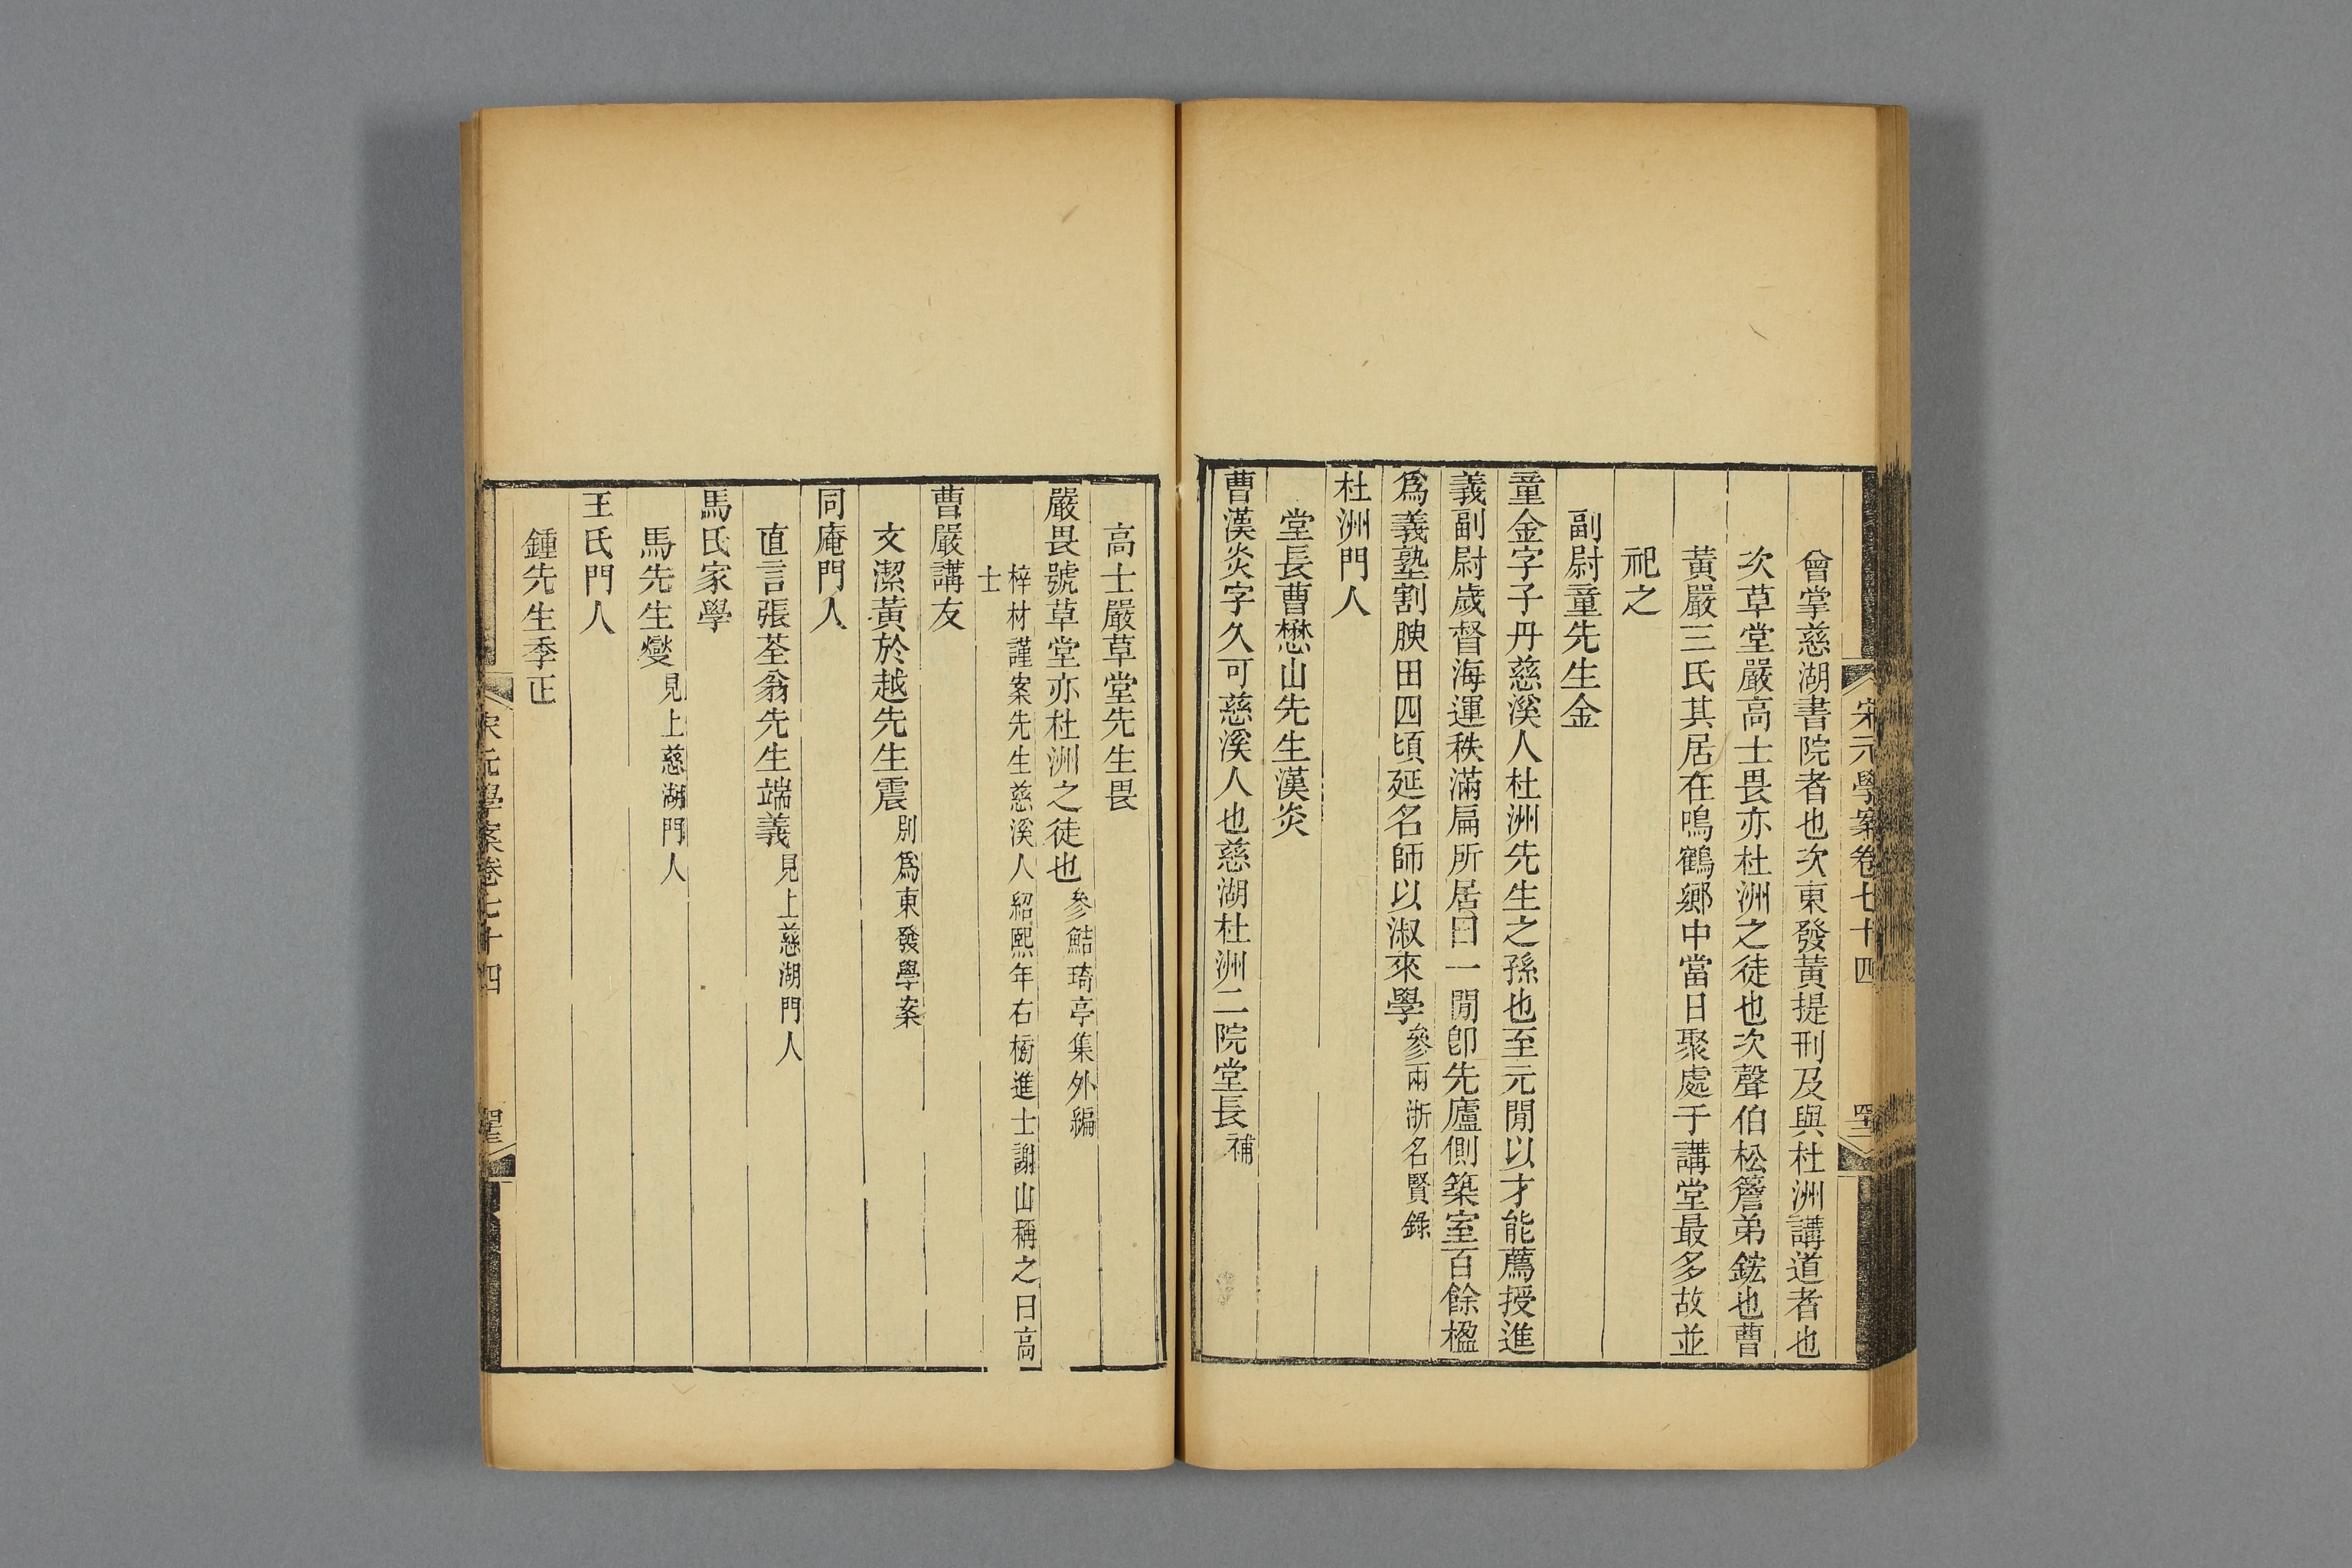 宋元學案卷七十四
曾掌慈湖書院者也次東發黃提刑及與杜洲講道者也
次草堂嚴高士畏亦杜洲之徒也次聲伯松簷弟鋐也曹
黃嚴三氏其居在鳴鶴鄉中當日聚處于講堂最多故並
祀之
副尉童先生金
童金字子丹慈溪人杜洲先生之孫也至元閒以才能薦授進
義副尉歲督海運秩滿扁所居曰一閒卽先廬側築室百餘楹
爲義塾割腴田四頃延名師以淑來學參兩浙名賢錄
杜洲門人
堂長曹懋山先生漢炎
曹漢炎字久可慈溪人也慈湖杜洲二院堂長補
高士嚴草堂先生畏
嚴畏號草堂亦杜洲之徒也參鮚琦亭集外編
梓材謹案先生慈溪人紹熙年右榜進士謝山稱之曰高
士
曹嚴講友
文潔黃於越先生震別爲東發學案
同庵門人
直言張荃翁先生端義見上慈湖門人
馬氏家學
馬先生燮見上慈湖門人
王氏門人
鍾先生季正
宋元學案卷七十四